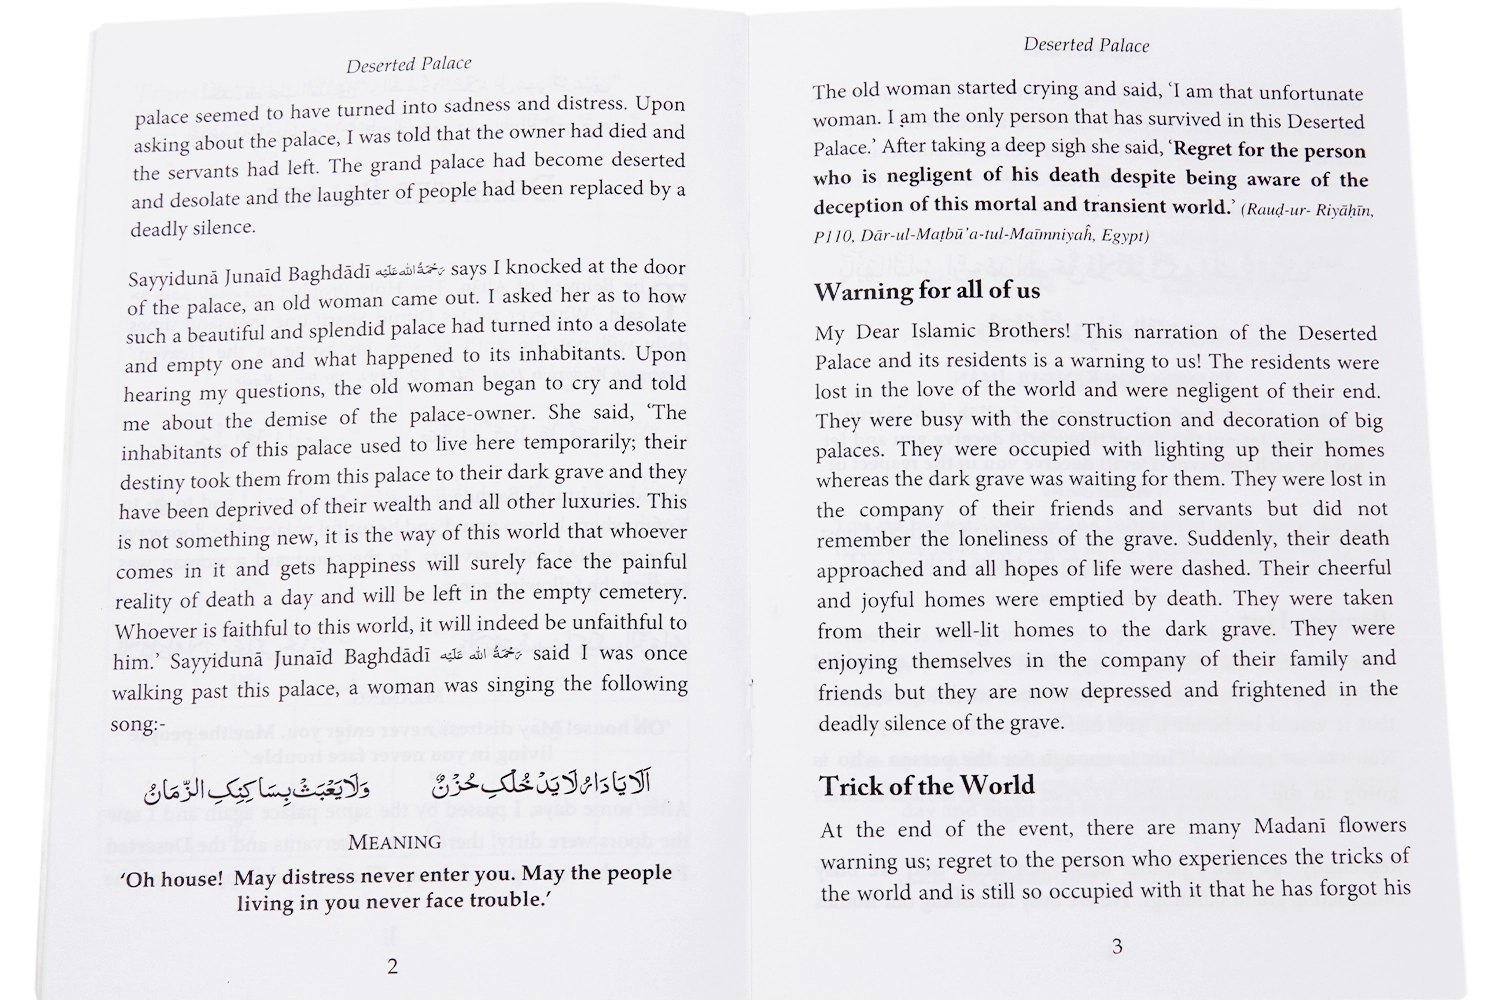 Deserted Palace
palace seemed to have turned into sadness and distress. Upon
asking about the palace, I was told that the owner had died and
the servants had left. The grand palace had become deserted
and desolate and the laughter of people had been replaced by a
deadly silence.
Sayyidunā Junaīd Baghdādī رَحْمَةُ اللّٰه عَلَيْه says I knocked at the door
of the palace, an old woman came out. I asked her as to how
such a beautiful and splendid palace had turned into a desolate
and empty one and what happened to its inhabitants. Upon
hearing my questions, the old woman began to cry and told
me about the demise of the palace-owner. She said, ‘The
inhabitants of this palace used to live here temporarily; their
destiny took them from this palace to their dark grave and they
have been deprived of their wealth and all other luxuries. This
is not something new, it is the way of this world that whoever
comes in it and gets happiness will surely face the painful
reality of death a day and will be left in the empty cemetery.
Whoever is faithful to this world, it will indeed be unfaithful to
him.’ Sayyidunā Junaīd Baghdādī رَحْمَةُ اللّٰه عَلَيْه said I was once
walking past this palace, a woman was singing the following
song:-
اَلَا يَا دَارُ لَا يَدْخُلُكِ حُزْنٌ وَلَا يَعْبَثْ بِسَاكِنِكِ الزَّمَانُ
MEANING
‘Oh house! May distress never enter you. May the people
living in you never face trouble.’
2
Deserted Palace
The old woman started crying and said, ‘I am that unfortunate
woman. I am the only person that has survived in this Deserted
Palace.’ After taking a deep sigh she said, ‘Regret for the person
who is negligent of his death despite being aware of the
deception of this mortal and transient world.’ (Rauḍ-ur- Riyāḥīn,
P110, Dār-ul-Maṭbū’a-tul-Maīmniyaĥ, Egypt)
Warning for all of us
My Dear Islamic Brothers! This narration of the Deserted
Palace and its residents is a warning to us! The residents were
lost in the love of the world and were negligent of their end.
They were busy with the construction and decoration of big
palaces. They were occupied with lighting up their homes
whereas the dark grave was waiting for them. They were lost in
the company of their friends and servants but did not
remember the loneliness of the grave. Suddenly, their death
approached and all hopes of life were dashed. Their cheerful
and joyful homes were emptied by death. They were taken
from their well-lit homes to the dark grave. They were
enjoying themselves in the company of their family and
friends but they are now depressed and frightened in the
deadly silence of the grave.
Trick of the World
At the end of the event, there are many Madanī flowers
warning us; regret to the person who experiences the tricks of
the world and is still so occupied with it that he has forgot his
3